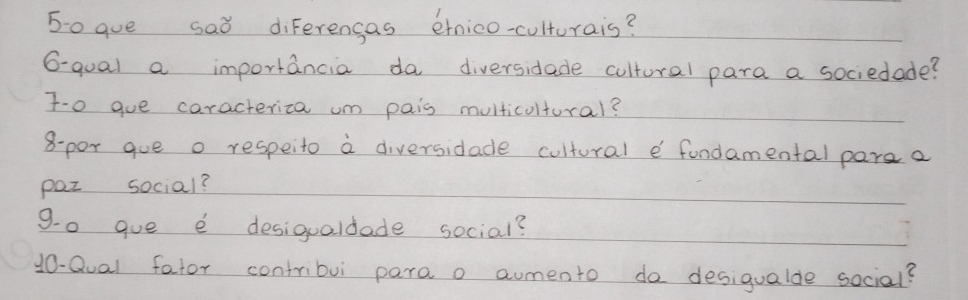 5-o que saõ diferenças étnico-culturais?
6-qual a importância da diversidade cultural para a sociedade?
7-o que caracteriza um país multicultural?
8-por que o respeito à diversidade cultural é fundamental para a
paz social?
9-o que é desigualdade social?
10-Qual fator contribui para o aumento da desigualde social?